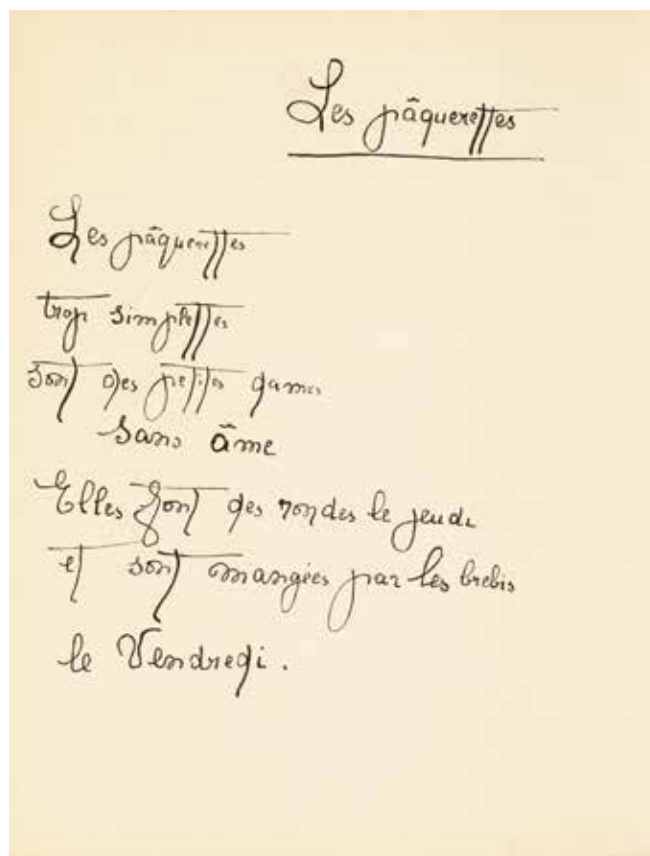 Les pâquerettes
Les pâquerettes
trop simplettes
sont des petites dames
sans âme
Elles font des rondes le jeudi
et sont mangées par les brebis
le Vendredi.